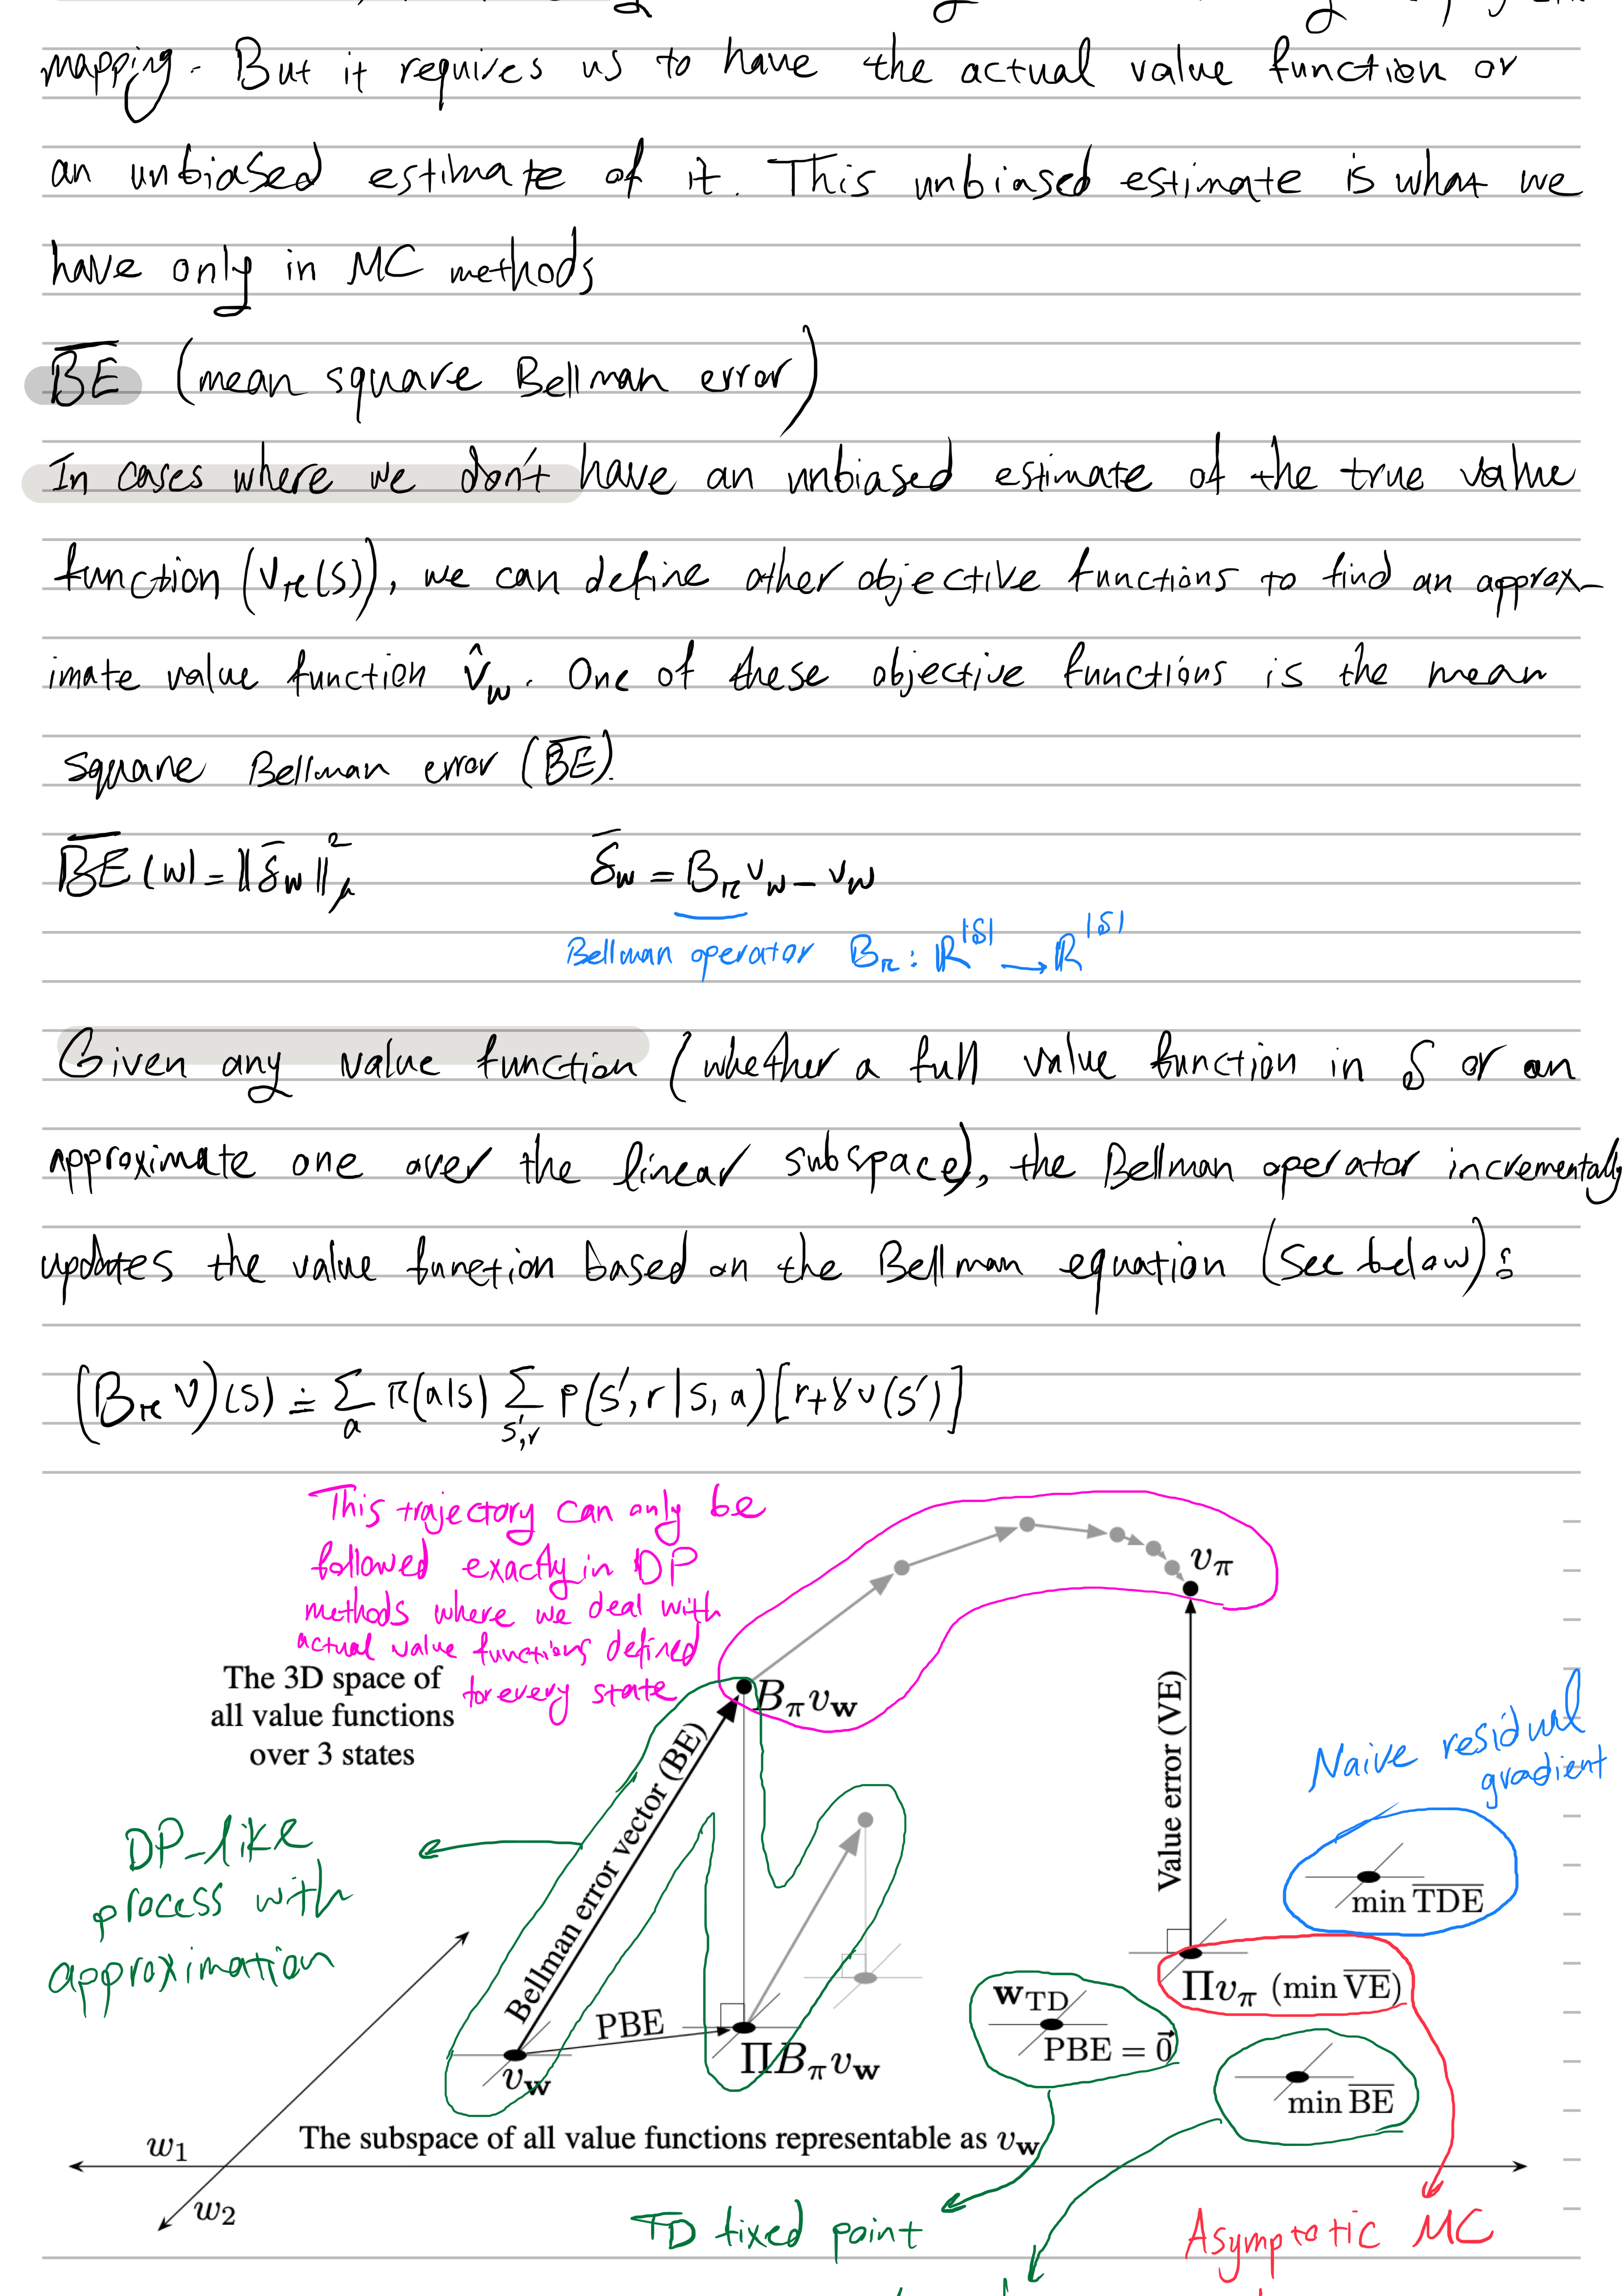 mapping. But it requires us to have the actual value function or
an unbiased estimate of it. This unbiased estimate is what we
have only in MC methods
B̅E̅ (mean square Bellman error)
In cases where we don't have an unbiased estimate of the true value
function (vπ(s)), we can define other objective functions to find an approx-
imate value function v̂w. One of these objective functions is the mean
square Bellman error (B̅E̅).
B̅E̅(w) = ‖δ̄w‖²μ   δ̄w = Bπvw − vw
Bellman operator Bπ : ℝ^|S| → ℝ^|S|
Given any value function (whether a full value function in S or an
approximate one over the linear subspace), the Bellman operator incrementally
updates the value function based on the Bellman equation (see below):
(Bπ v)(s) ≐ Σa π(a|s) Σs',r p(s', r | s, a) [r + γv(s')]
This trajectory can only be
followed exactly in DP
methods where we deal with
actual value functions defined
for every state
vπ
The 3D space of
all value functions
over 3 states
Bπvw
Bellman error vector (BE)
Value error (VE)
Naive residual
gradient
DP-like
process with
approximation
min T̅D̅E̅
Πvπ (min V̅E̅)
wTD
PBE = 0⃗
PBE
vw
ΠBπvw
min B̅E̅
The subspace of all value functions representable as vw
w1
w2
TD fixed point
Asymptotic MC